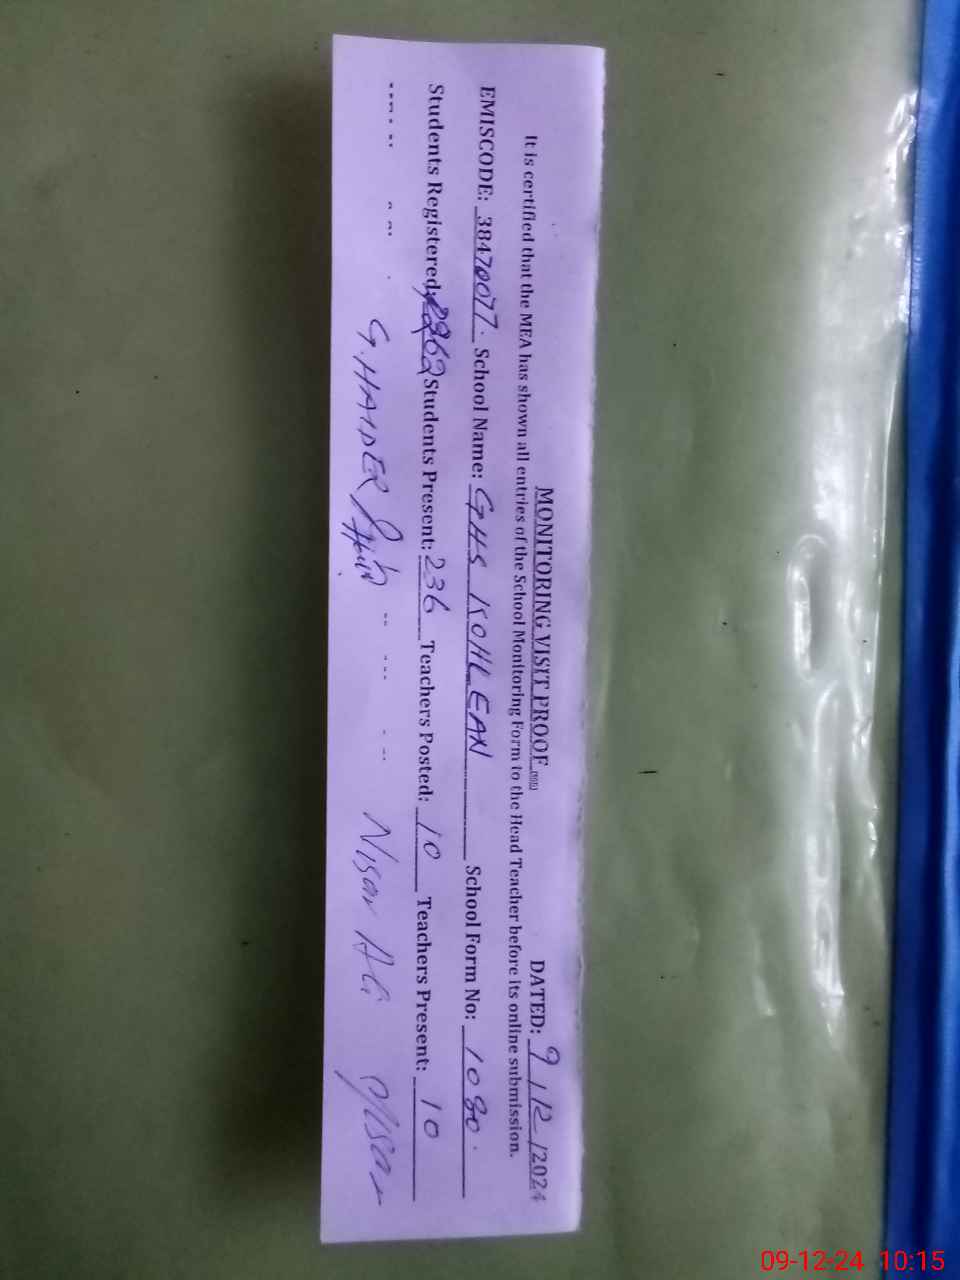 MONITORING VISIT PROOF DATED: 9/12/2024
It is certified that the MEA has shown all entries of the School Monitoring Form to the Head Teacher before its online submission.
EMISCODE: 38470077. School Name: GHS KOHLEAN School Form No: 1080.
Students Registered: 262 Students Present: 236 Teachers Posted: 10 Teachers Present: 10
G.HAIDER Nisar Ali Nisar
09-12-24 10:15